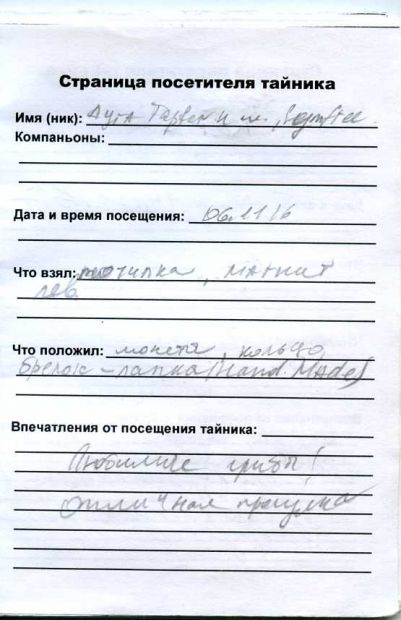 Страница посетителя тайника
Имя (ник): Дуга
Компаньоны:
Дата и время посещения: 06.11.16
Что взял: точилка, магнит
лев
Что положил: монета, кольцо,
брелок - лапка (Hand Made)
Впечатления от посещения тайника:
Любимые грибы!
Отличная прогулка